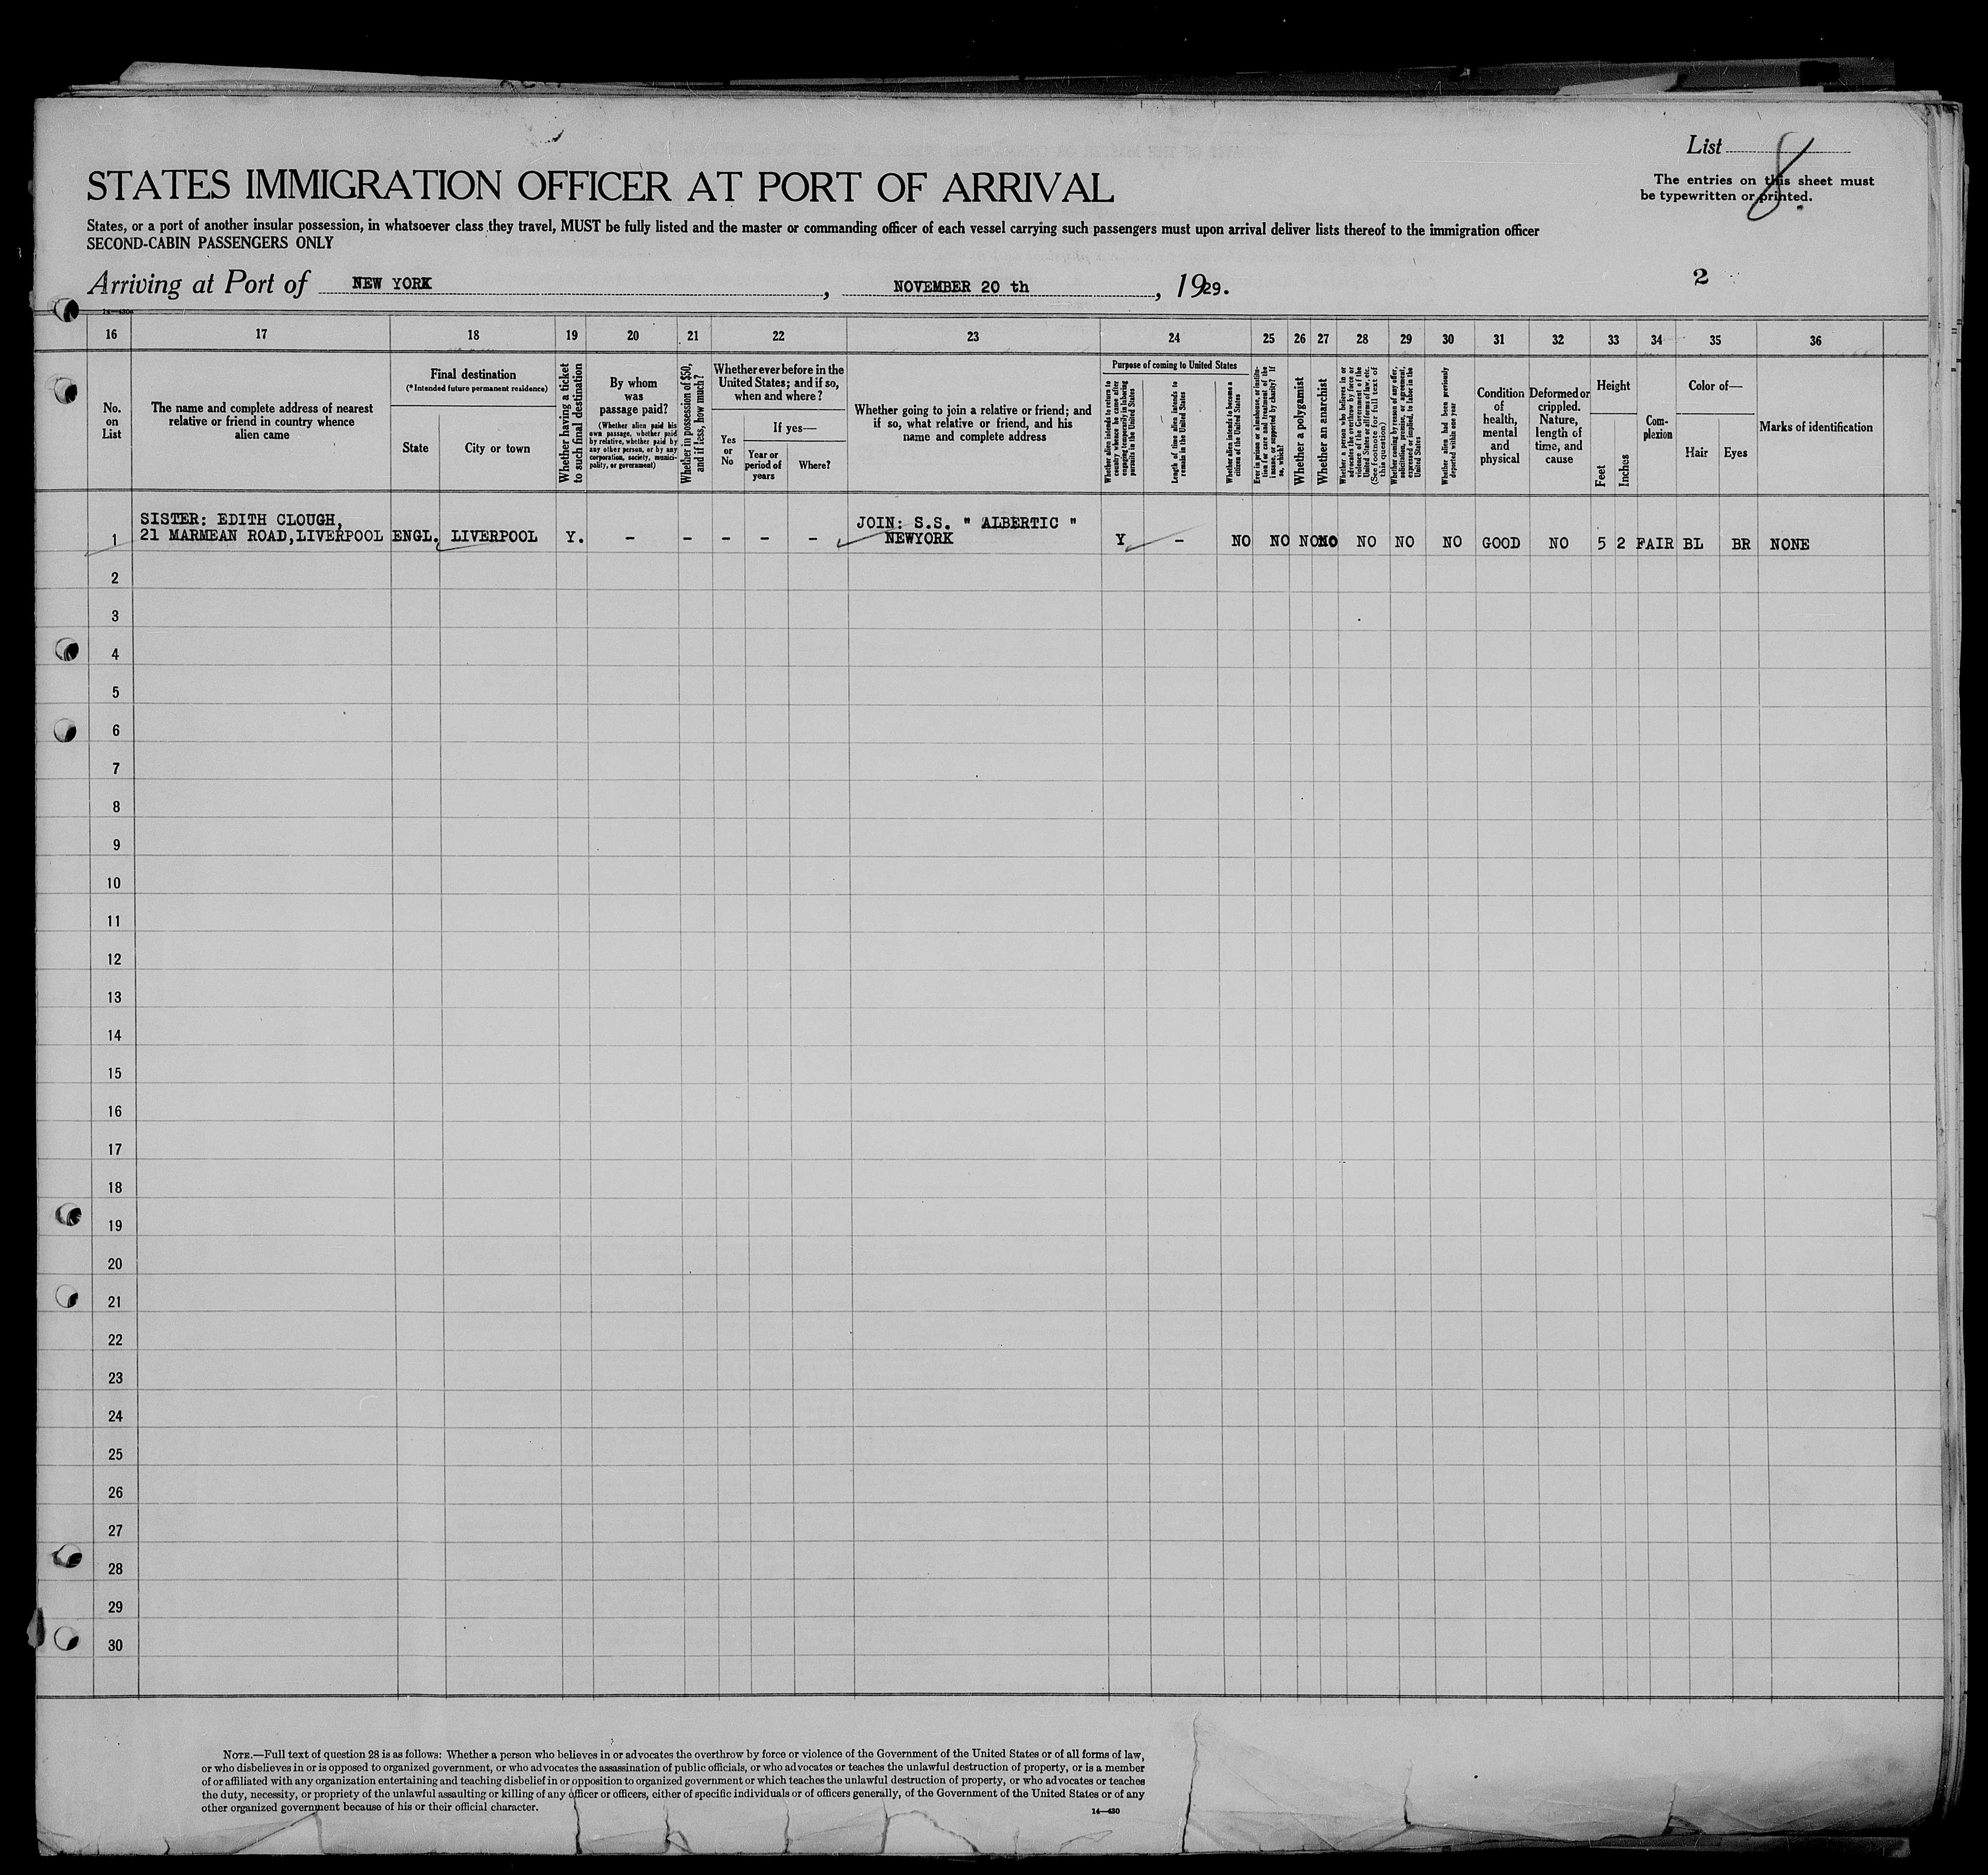 List 8.
The entries on this sheet must
be typewritten or printed.
STATES IMMIGRATION OFFICER AT PORT OF ARRIVAL
States, or a port of another insular possession, in whatsoever class they travel, MUST be fully listed and the master or commanding officer of each vessel carrying such passengers must upon arrival deliver lists thereof to the immigration officer
SECOND-CABIN PASSENGERS ONLY
Arriving at Port of NEW YORK, NOVEMBER 20 th, 1929.
2
16 17 18 19 20 21 22 23 24 25 26 27 28 29 30 31 32 33 34 35 36
No.
on
List
The name and complete address of nearest
relative or friend in country whence
alien came
Final destination
(*Intended future permanent residence)
State
City or town
Whether having a ticket
to such final destination
By whom
was
passage paid?
(Whether alien paid his
own passage, whether paid
by relative, whether paid by
any other person, or by any
corporation, society, munici-
pality, or government)
Whether in possession of $50,
and if less, how much?
Whether ever before in the
United States; and if so,
when and where?
Yes
or
No
If yes—
Year or
period of
years
Where?
Whether going to join a relative or friend; and
if so, what relative or friend, and his
name and complete address
Purpose of coming to United States
Whether alien intends to return to
country whence he came after
engaging temporarily in laboring
pursuits in the United States
Length of time alien intends to
remain in the United States
Whether alien intends to become a
citizen of the United States
Ever in prison or almshouse, or institu-
tion for care and treatment of the
insane, or supported by charity? If
so, which?
Whether a polygamist
Whether an anarchist
Whether a person who believes in or
advocates the overthrow by force or
violence of the Government of the
United States or all forms of law, etc.
(See footnote for full text of
this question)
Whether coming by reason of any offer,
solicitation, promise, or agreement,
expressed or implied, to labor in the
United States
Whether alien had been previously
deported within one year
Condition
of
health,
mental
and
physical
Deformed or
crippled.
Nature,
length of
time, and
cause
Height
Feet
Inches
Com-
plexion
Color of—
Hair
Eyes
Marks of identification
SISTER: EDITH CLOUGH, JOIN: S.S. " ALBERTIC "
1 21 MARMEAN ROAD,LIVERPOOL ENGL. LIVERPOOL Y. - - - - - NEWYORK Y - NO NO NO NO NO NO NO GOOD NO 5 2 FAIR BL BR NONE
2
3
4
5
6
7
8
9
10
11
12
13
14
15
16
17
18
19
20
21
22
23
24
25
26
27
28
29
30
NOTE.—Full text of question 28 is as follows: Whether a person who believes in or advocates the overthrow by force or violence of the Government of the United States or of all forms of law,
or who disbelieves in or is opposed to organized government, or who advocates the assassination of public officials, or who advocates or teaches the unlawful destruction of property, or is a member
of or affiliated with any organization entertaining and teaching disbelief in or opposition to organized government or which teaches the unlawful destruction of property, or who advocates or teaches
the duty, necessity, or propriety of the unlawful assaulting or killing of any officer or officers, either of specific individuals or of officers generally, of the Government of the United States or of any
other organized government because of his or their official character.
14—430